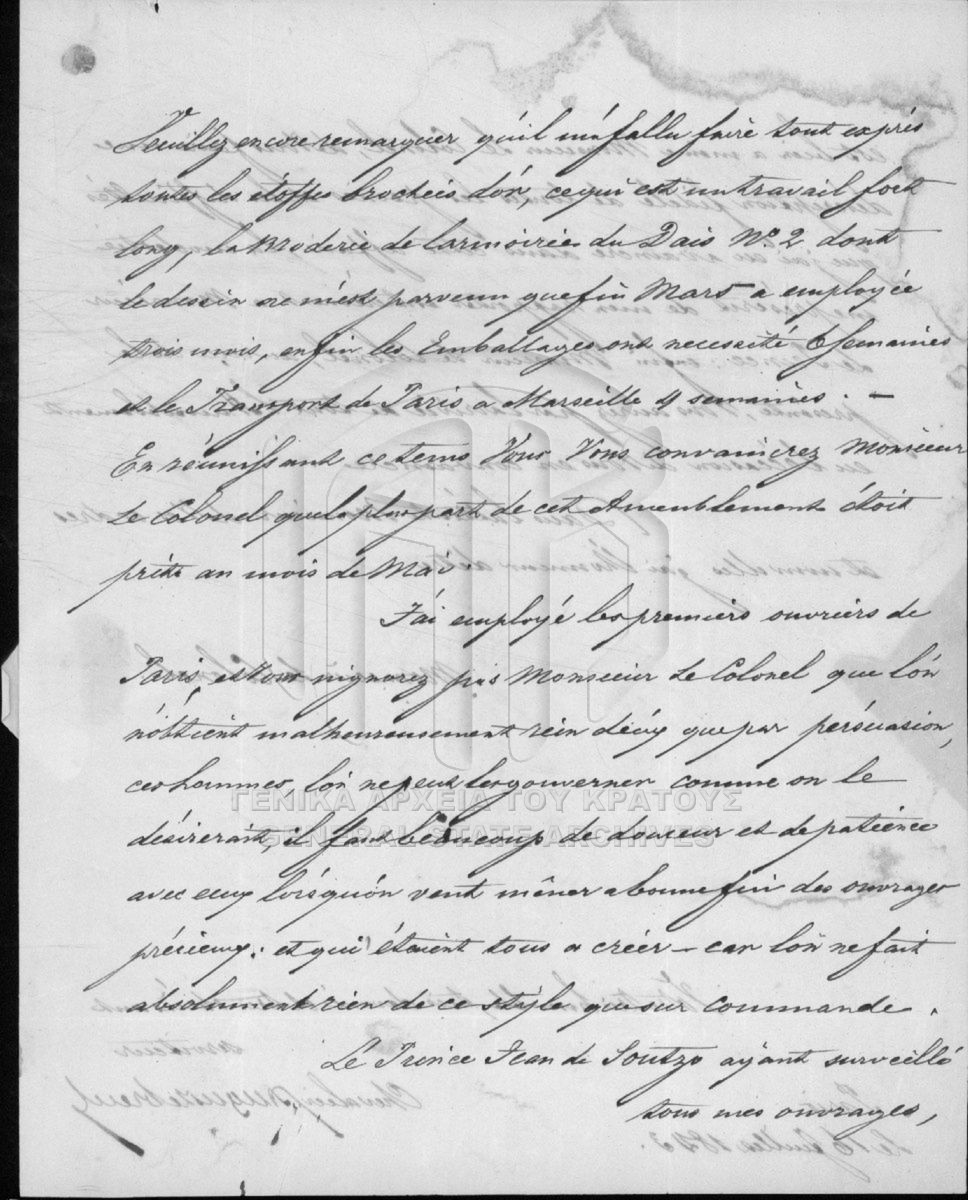 Veuillez encore remarquer qu'il m'a fallu faire tout exprés
toutes les étoffes brocheés d'or, ce qui est un travail fort
long, la Broderie de larmoirie du Dais No. 2 dont
le dessin ne m'est parvenu que fin Mars a employée
trois mois, enfin les Emballages ont necessité 6 Semaines
et le Transport de Paris a Marseille 4 semaines. —
En réunissant ce tems Vous Vous convaincrez Monsieur
Le Colonel que la plus part de cet Ameublement étoit
prête au mois de Mai.
J'ai employé les premiers ouvriers de
Paris, et Vous n'ignorez pas Monsieur Le Colonel que l'on
n'obtient malheureusement rein d'eux que par persuasion,
ces hommes, l'on ne peut les gouverner comme on le
désirerait, il faut beaucoup de douceur et de patience
avec eux lorsqu'on veut mêner a bonne fin des ouvrages
précieux: et qui étaient tous a créer — car l'on ne fait
absolument rien de ce style que sur commande.
Le Prince Jean de Soutzo ayant surveillé
tous mes ouvrages,
ΓΕΝΙΚΑ ΑΡΧΕΙΑ ΤΟΥ ΚΡΑΤΟΥΣ
GENERAL STATE ARCHIVES